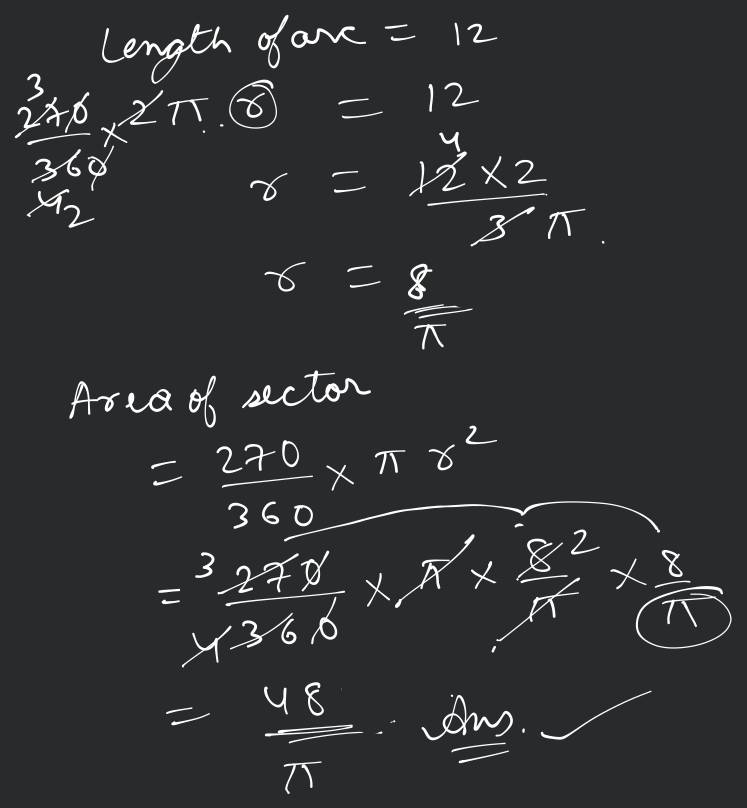 Length of arc = 12
3
270/360 × 2π . r = 12
4 2
4
r = 12 × 2 / 3 π .
r = 8/π
Area of sector
= 270/360 × π r²
= 3 270/4 360 × π × 8 2/π × 8/π
= 48/π Ans. ✓